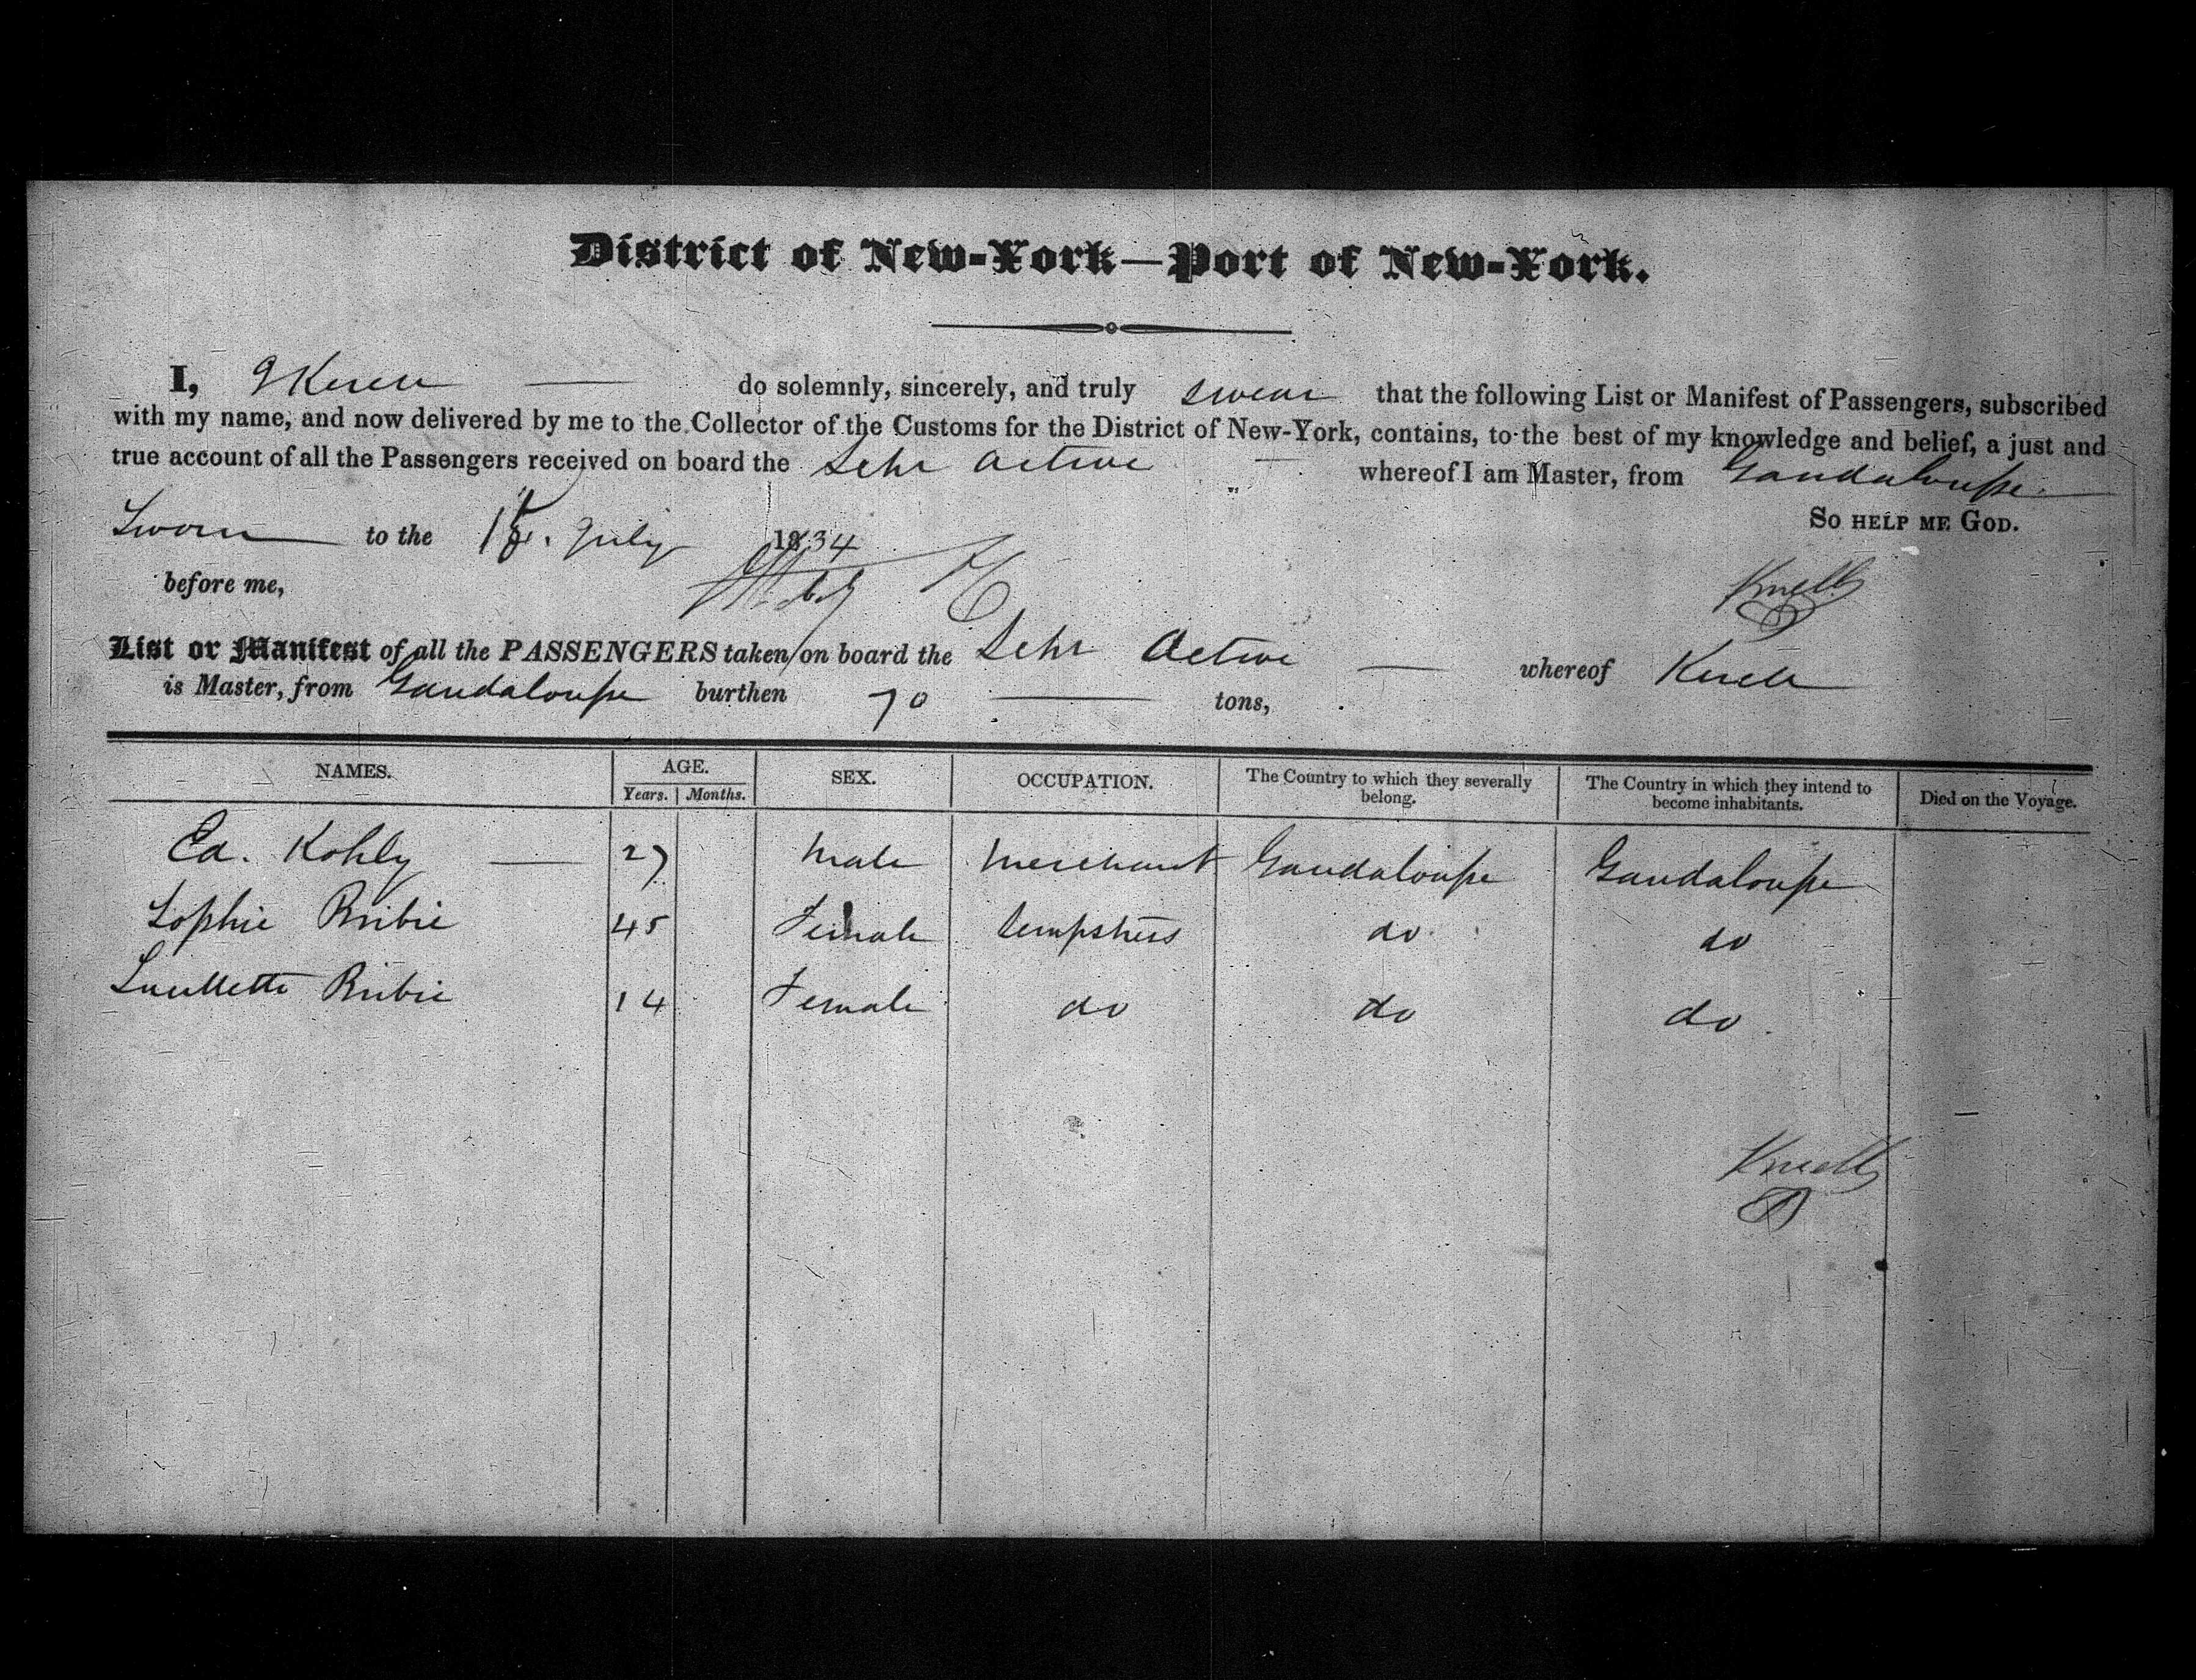 District of New-York—Port of New-York.
I, Knell do solemnly, sincerely, and truly swear that the following List or Manifest of Passengers, subscribed
with my name, and now delivered by me to the Collector of the Customs for the District of New-York, contains, to the best of my knowledge and belief, a just and
true account of all the Passengers received on board the Schr Active whereof I am Master, from Gaudaloupe.
So HELP ME GOD.
Sworn to the July 1834
before me,
Knell
List or Manifest of all the PASSENGERS taken on board the Schr Active whereof Knell
is Master, from Gaudaloupe burthen 70 tons,
NAMES. AGE. SEX. OCCUPATION. The Country to which they severally belong. The Country in which they intend to become inhabitants. Died on the Voyage.
Years. Months.
Ed. Kohly 27 Male Merchant Gaudaloupe Gaudaloupe
Sophie Bribie 45 Female Sempstress do do
Bribie 14 Female do do do
Knell